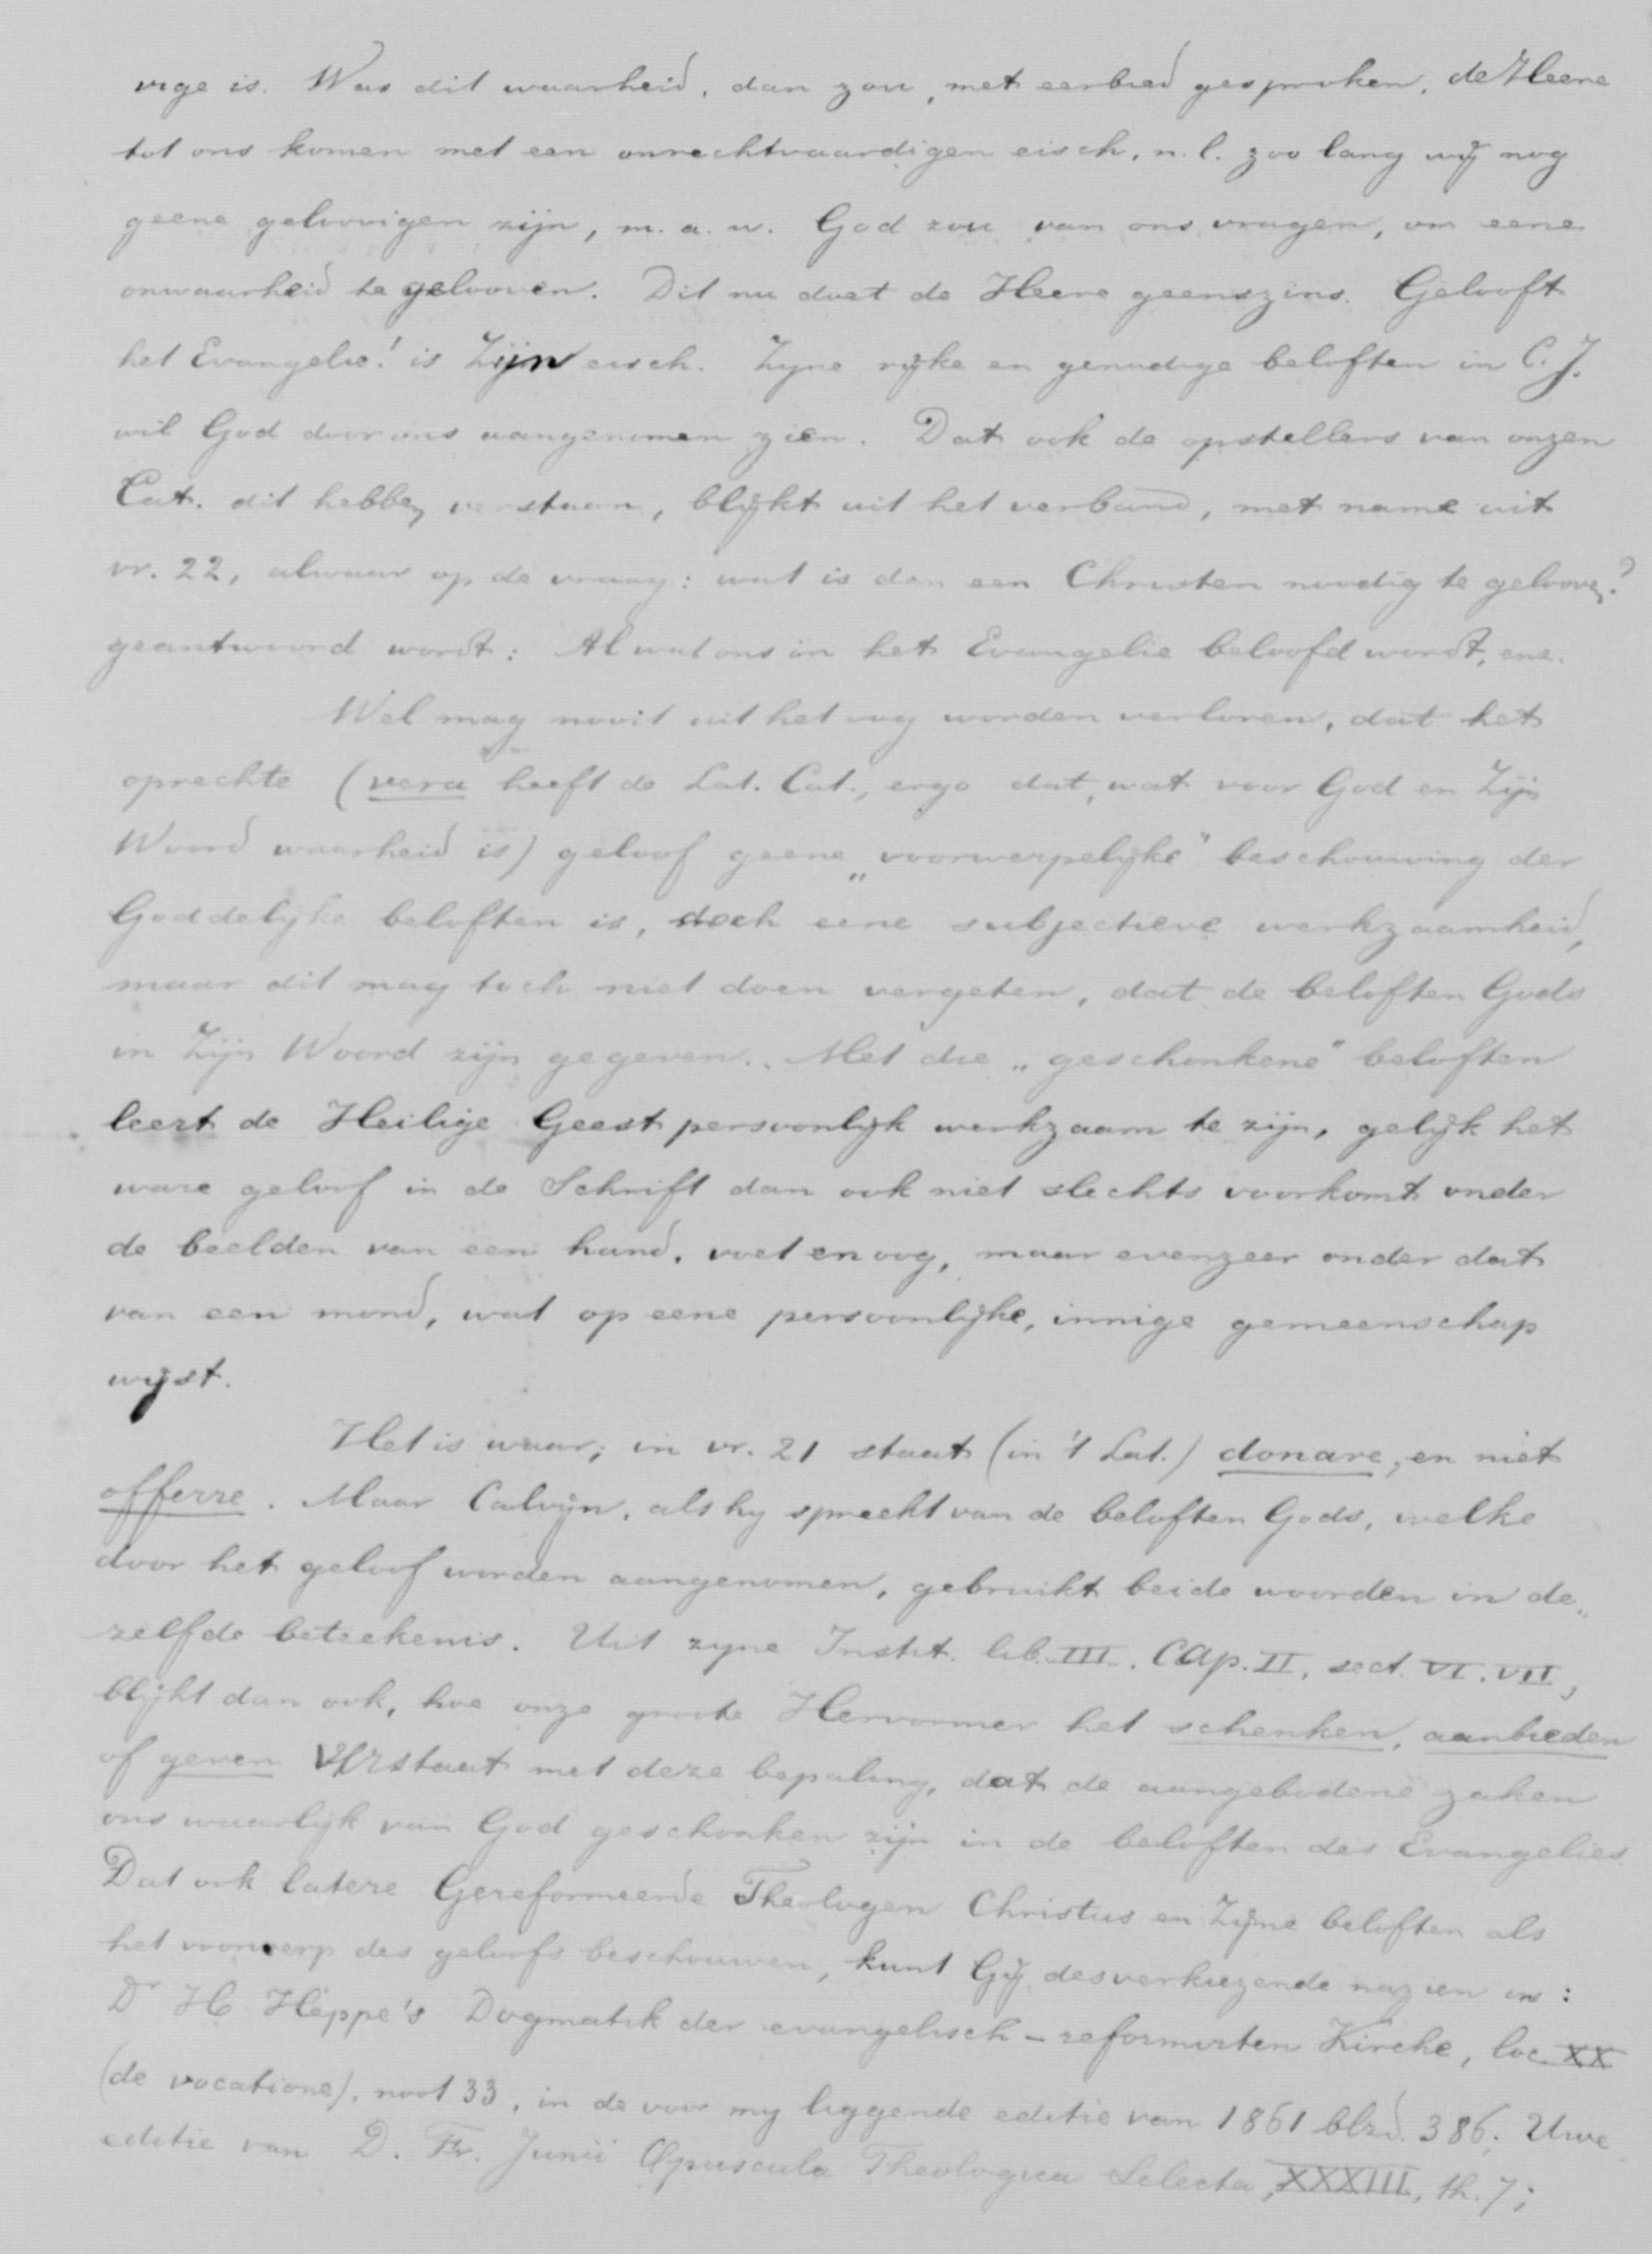 vige is. Was dit waarheid, dan zou, met eerbied gesproken, de Heere
tot ons komen met een onrechtvaardigen eisch, n.l. zoo lang wij nog
geene geloovigen zijn, m.a.w. God zou van ons vragen, om eene
onwaarheid te gelooven. Dit nu doet de Heere geenszins. Gelooft
het Evangelie! is Zijn eisch. Zyne rijke en genadige beloften in C. J.
wil God door ons aangenomen zien. Dat ook de opstellers van onzen
Cat. dit hebben verstaan, blijkt uit het verband, met name uit
vr. 22, alwaar op de vraag: wat is dan een Christen noodig te gelooven?
geantwoord wordt: Al wat ons in het Evangelie beloofd wordt, enz.
Wel mag nooit uit het oog worden verloren, dat het
oprechte (vera heeft de Lat. Cat., ergo dat, wat voor God en Zijn
Woord waarheid is) geloof geene „voorwerpelijke" beschouwing der
Goddelijke beloften is, doch eene subjectieve werkzaamheid,
maar dit mag toch niet doen vergeten, dat de beloften Gods
in Zijn Woord zijn gegeven. Met die „geschonkene" beloften
leert de Heilige Geest persoonlijk werkzaam te zijn, gelijk het
ware geloof in de Schrift dan ook niet slechts voorkomt onder
de beelden van een hand, voet en oog, maar evenzeer onder dat
van een mond, wat op eene persoonlijke, innige gemeenschap
wijst.
Het is waar, in vr. 21 staat (in 't Lat.) donare, en niet
offerre. Maar Calvijn, als hy spreekt van de beloften Gods, welke
door het geloof worden aangenomen, gebruikt beide woorden in de„
zelfde beteekenis. Uit zyne Instit. lib. III. Cap. II, sect. VI. VII,
blijkt dan ook, hoe onze groote Hervormer het schenken, aanbieden
of geven verstaat met deze bepaling, dat de aangebodene zaken
ons waarlijk van God geschonken zijn in de beloften des Evangelies.
Dat ook latere Gereformeerde Theologen Christus en Zijne beloften als
het voorwerp des geloofs beschouwen, kunt Gij desverkiezende nazien in:
Dr H. Heppe's Dogmatik der evangelisch-reformirten Kirche, loc. XX
(de vocatione), noot 33, in de voor my liggende editie van 1861 blzd. 386; Uwe
editie van D. Fr. Junii Opuscula Theologica Selecta, XXXIII, th. 7;